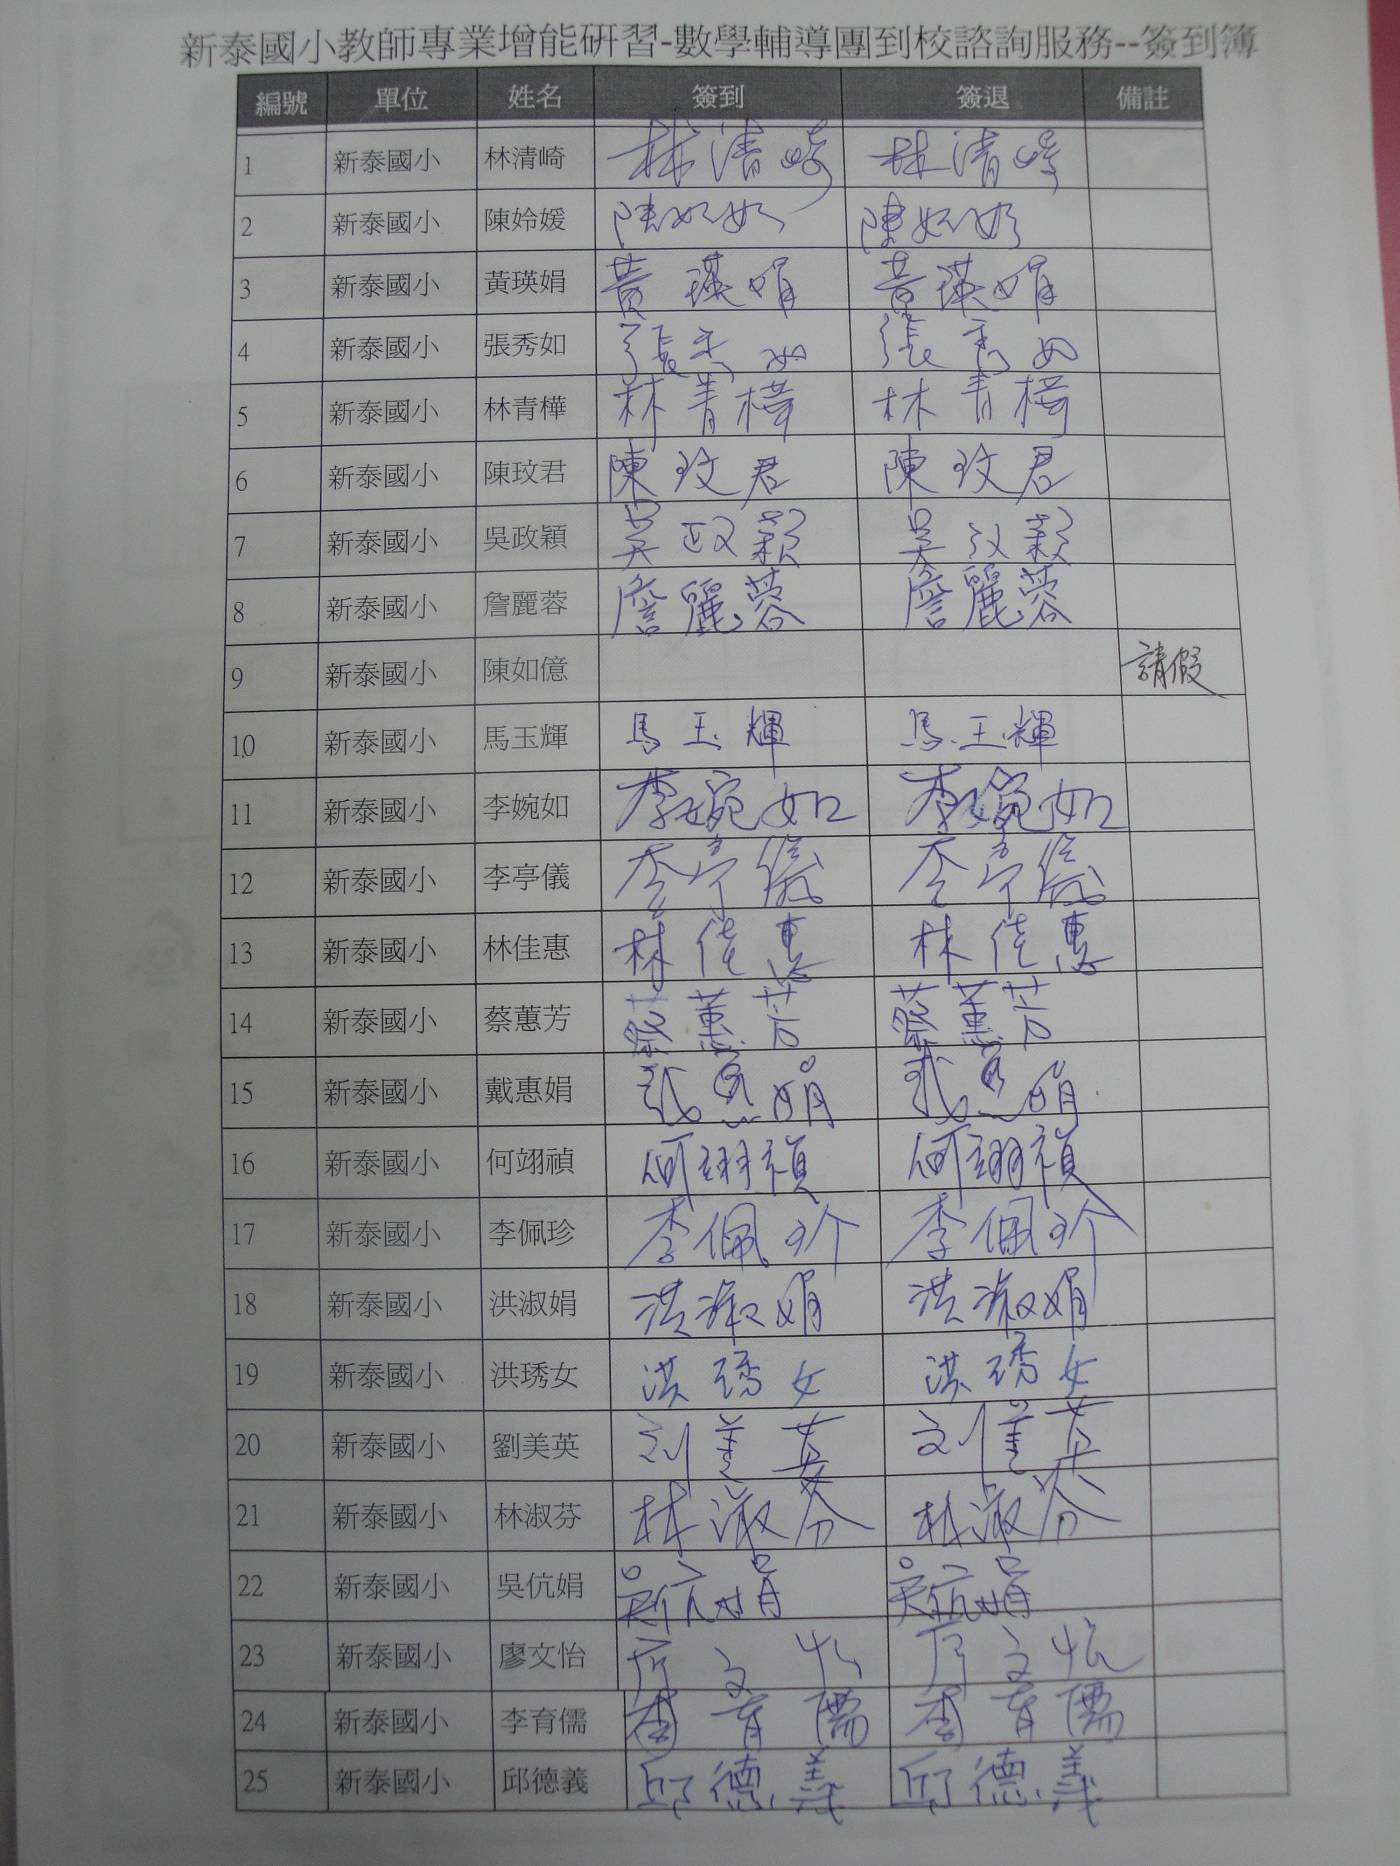 新泰國小教師專業增能研習-數學輔導團到校諮詢服務--簽到簿
編號 單位 姓名 簽到 簽退 備註
1 新泰國小 林清崎 林清崎 林清崎
2 新泰國小 陳姈媛 陳姈媛 陳姈媛
3 新泰國小 黃瑛娟 黃瑛娟 黃瑛娟
4 新泰國小 張秀如 張秀如 張秀如
5 新泰國小 林青樺 林青樺 林青樺
6 新泰國小 陳玟君 陳玟君 陳玟君
7 新泰國小 吳政穎 吳政穎 吳政穎
8 新泰國小 詹麗蓉 詹麗蓉 詹麗蓉
9 新泰國小 陳如億 請假
10 新泰國小 馬玉輝 馬玉輝 馬玉輝
11 新泰國小 李婉如 李婉如 李婉如
12 新泰國小 李亭儀 李亭儀 李亭儀
13 新泰國小 林佳惠 林佳惠 林佳惠
14 新泰國小 蔡蕙芳 蔡蕙芳 蔡蕙芳
15 新泰國小 戴惠娟 戴惠娟 戴惠娟
16 新泰國小 何翊禎 何翊禎 何翊禎
17 新泰國小 李佩珍 李佩珍 李佩珍
18 新泰國小 洪淑娟 洪淑娟 洪淑娟
19 新泰國小 洪琇女 洪琇女 洪琇女
20 新泰國小 劉美英 刘美英 刘美英
21 新泰國小 林淑芬 林淑芬 林淑芬
22 新泰國小 吳伉娟 吳伉娟 吳伉娟
23 新泰國小 廖文怡 廖文怡 廖文怡
24 新泰國小 李育儒 李育儒 李育儒
25 新泰國小 邱德義 邱德義 邱德義